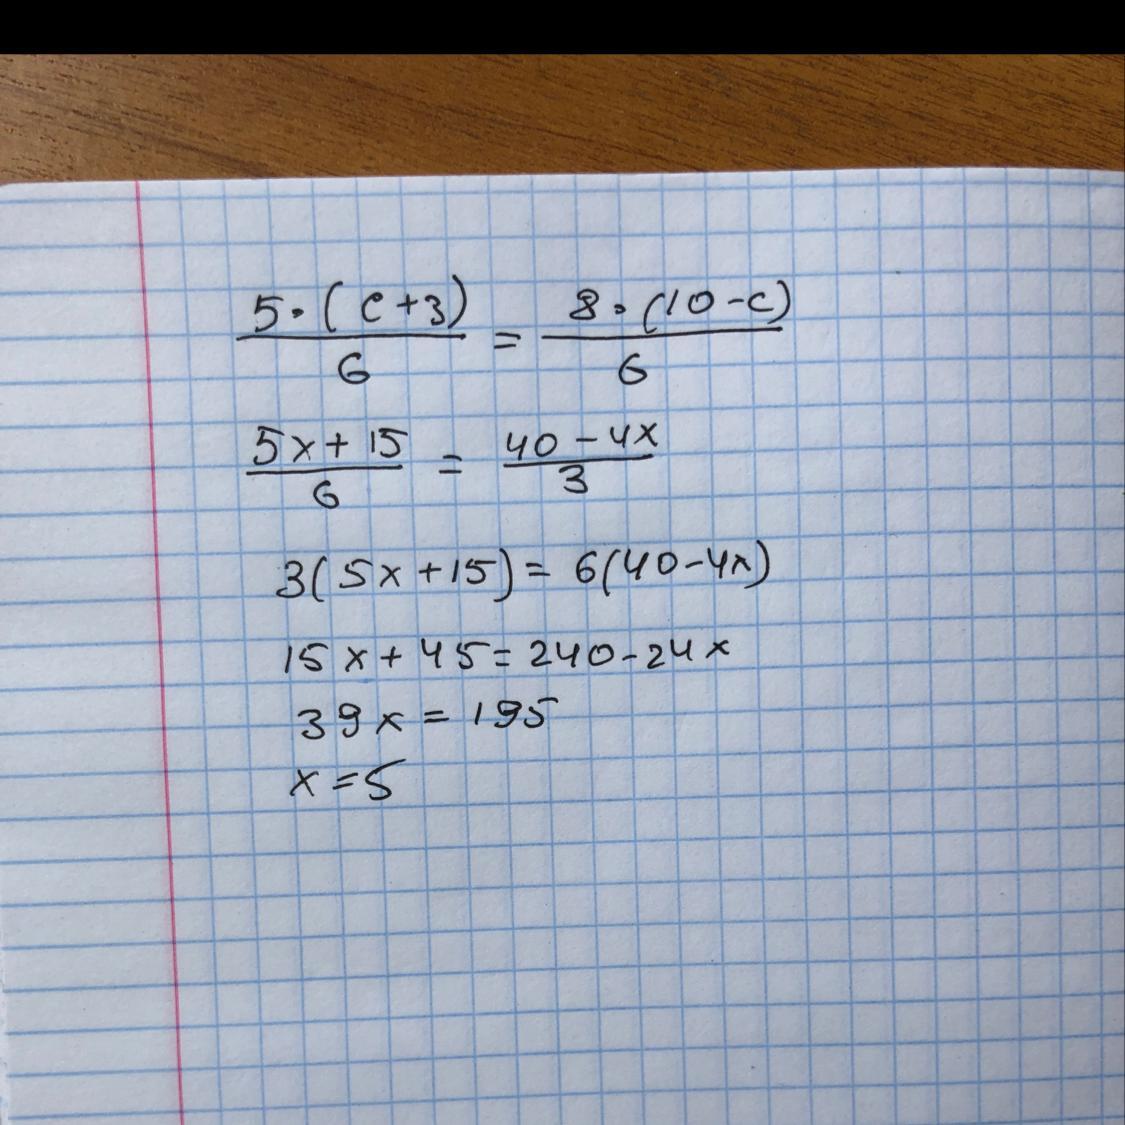 5·(c+3)/6 = 8·(10-c)/6
5x+15/6 = 40-4x/3
3(5x+15)= 6(40-4x)
15x+45=240-24x
39x=195
x=5